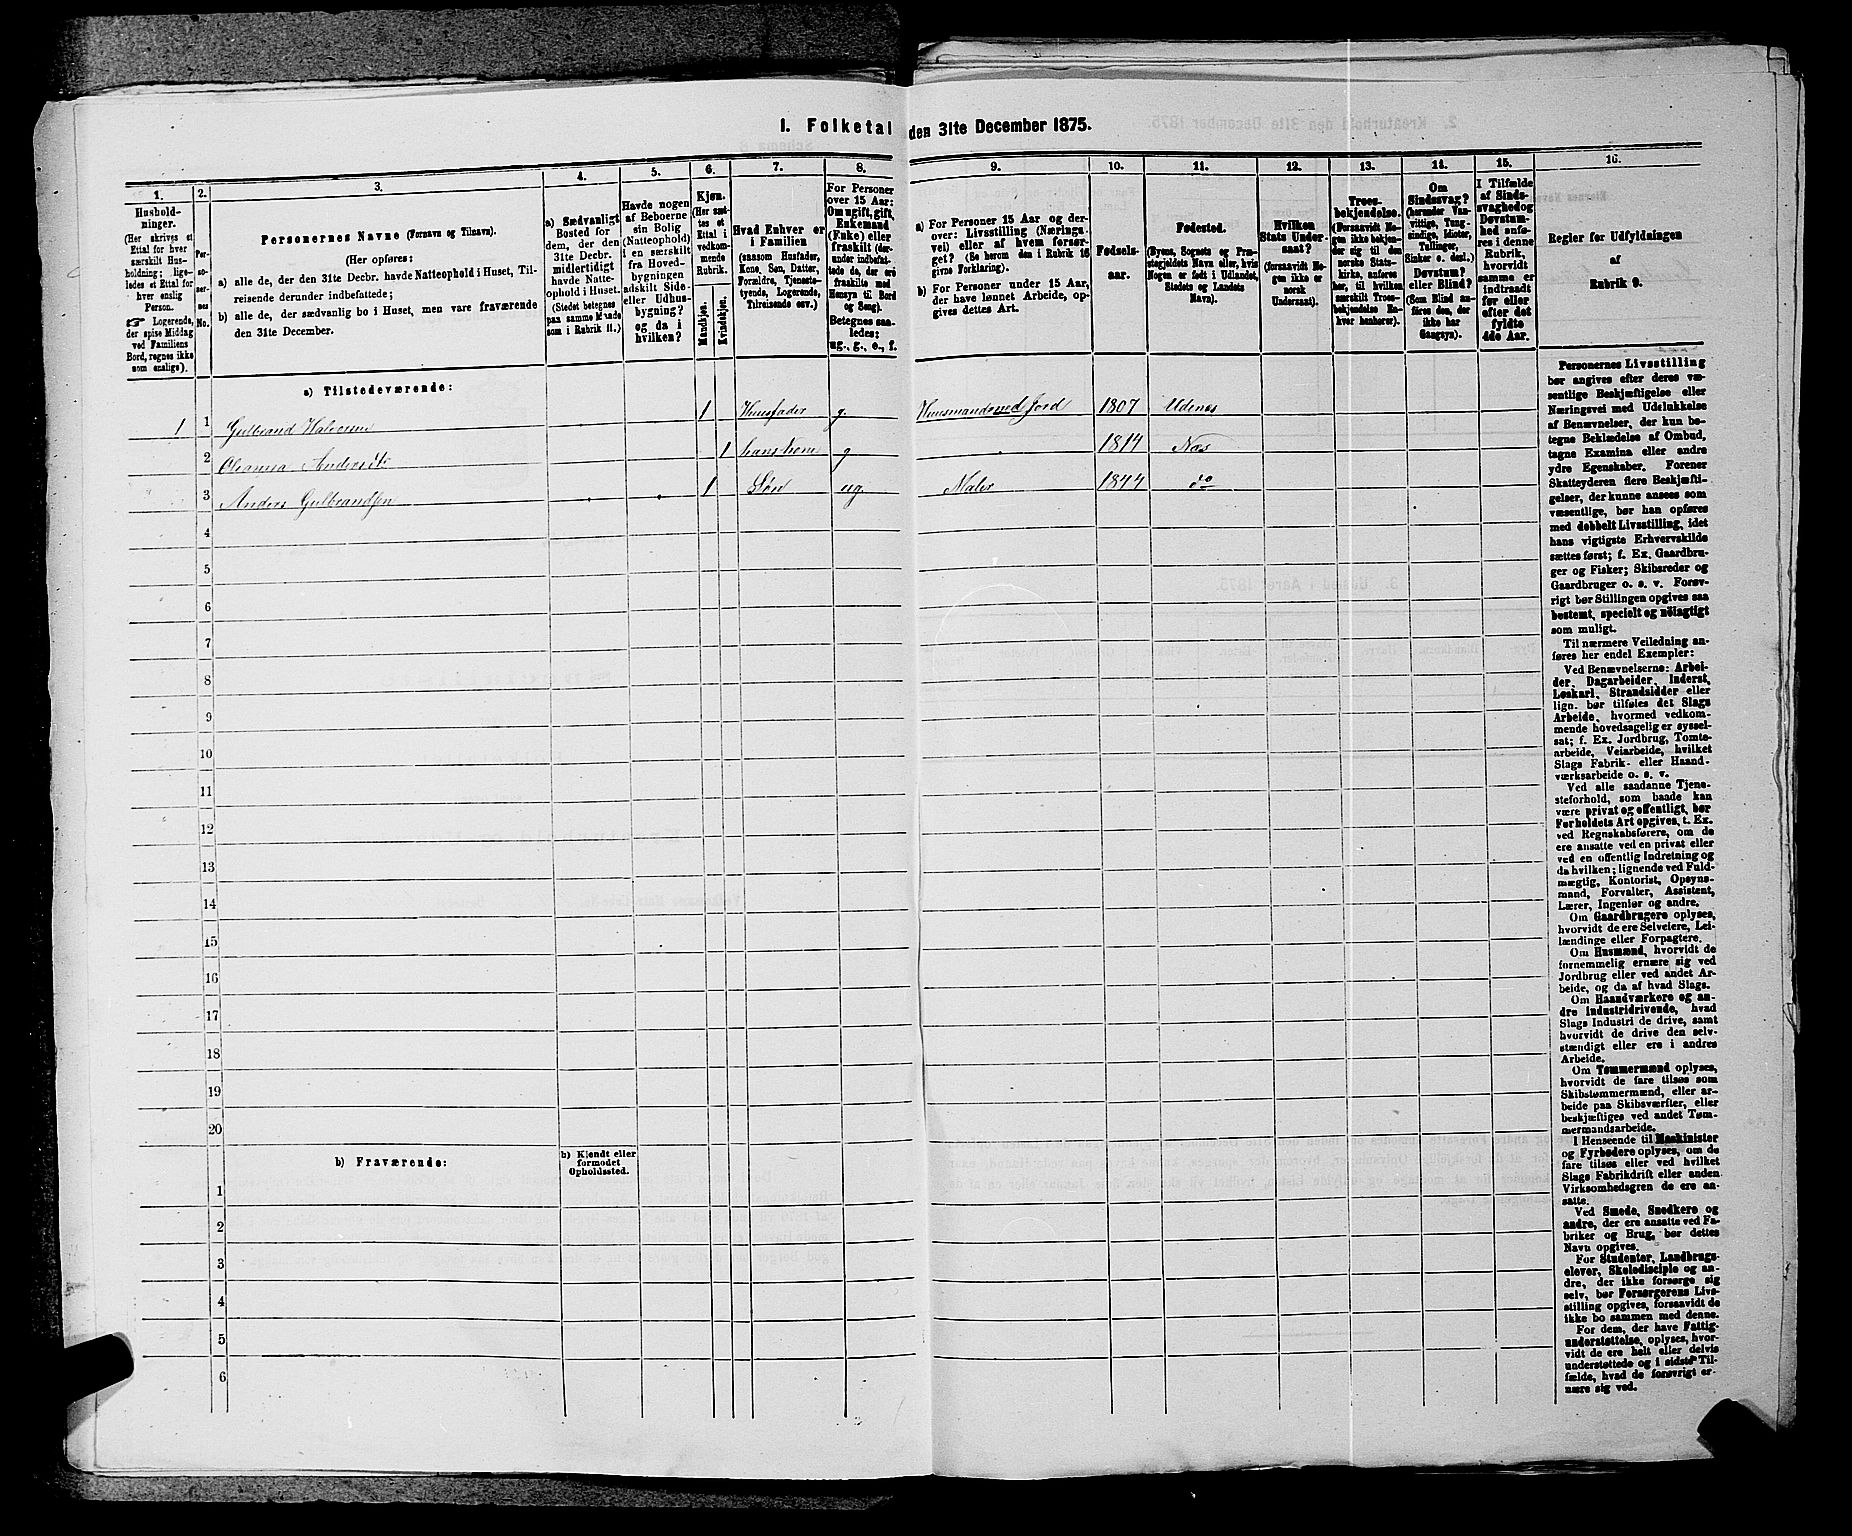 1. Folketal den 31te December 1875.
1.
Hushold-
ninger.
(Her skrives et
Ettal for hver
særskilt Hus-
holdning; lige-
ledes et Ettal for
hver enslig
Person.
☞ Logerende,
der spise Middag
ved Familiens
Bord, regnes ikke
som enslige).
2.
Per-
so-
ner-
nes
No.
3.
Personernes Navne (Fornavn og Tilnavn).
(Her opføres:
a) alle de, der den 31te Decbr. havde Natteophold i Huset, Til-
reisende derunder indbefattede;
b) alle de, der sædvanlig bo i Huset, men vare fraværende
den 31te December.
4.
a) Sædvanligt
Bosted for
dem, der den
31te Decbr.
midlertidigt
havde Natte-
ophold i Huset.
(Stedet betegnes
paa samme Maade
som i Rubrik 11.)
5.
Havde nogen
af Beboerne
sin Bolig
(Natteophold)
i en særskilt
fra Hoved-
bygningen
adskilt Side-
eller Udhus-
bygning?
og da i
hvilken?
6.
Kjøn.
(Her sæt-
tes et
Ettal i
vedkom-
mende
Rubrik.
Mandkjøn.
Kvindekjøn.
7.
Hvad Enhver er
i Familien
(saasom Husfader,
Kone, Søn, Datter,
Forældre, Tjeneste-
tyende, Logerende,
Tilreisende osv.)
8.
For Personer
over 15 Aar:
Om ugift, gift,
Enkemand
(Enke) eller
fraskilt (der-
under indbefat-
tede de, der ere
fraskilte med
Hensyn til Bord
og Seng).
Betegnes saa-
ledes:
ug., g., e., f.
9.
a) For Personer 15 Aar og der-
over: Livsstilling (Nærings-
vei) eller af hvem forsør-
get? (Se herom den i Rubrik 16
givne Forklaring).
b) For Personer under 15 Aar,
der have lønnet Arbeide, op-
gives dettes Art.
10.
Fødsels-
aar.
11.
Fødested.
(Byens, Sognets og Præ-
stegjeldets Navn eller, hvis
Nogen er født i Udlandet,
Stedets og Landets
Navn).
12.
Hvilken
Stats Under-
saat?
(forsaavidt No-
gen ikke er
norsk
Undersaat).
13.
Troes-
bekjendelse.
(Forsaavidt No-
gen ikke bekjen-
der sig til den
norske Stats-
kirke, anføres
her, til hvilken
særskilt Troes-
bekjendelse En-
hver henhører).
14.
Om
Sindssvag?
(herunder Van-
vittige, Tung-
sindige, Idioter,
Tullinger,
Sinker o. desl.)
Døvstum?
eller Blind?
(Som Blind an-
føres den, der
ikke har
Gangsyn).
15.
I Tilfælde
af Sinds-
svaghed og
Døvstum-
hed anfø-
res i denne
Rubrik,
hvorvidt
samme er
indtraadt
før eller
efter det
fyldte
4de Aar.
16.
Regler for Udfyldningen
af
Rubrik 9.
a) Tilstedeværende:
1 1 Gulbrand Halvorsen 1 Huusfader g. Huusmand med Jord 1807 Udenes
2 Oleanna Andersdtr 1 hans kone g 1814 Næs
3 Anders Gulbrandsen 1 Søn ug Maler 1844 do
4
5
6
7
8
9
10
11
12
13
14
15
16
17
18
19
20
b) Fraværende:
b) Kjendt eller
formodet
Opholdssted.
1
2
3
4
5
6
Personernes Livsstilling
bør angives efter deres væ-
sentlige Beskjæftigelse eller
Næringsvei med Udelukkelse
af Benævnelser, der kun be-
tegne Beklædelse af Ombud,
tagne Examina eller andre
ydre Egenskaber. Forener
Skatteyderen flere Beskjæfti-
gelser, der kunne ansees som
væsentlige, bør han opføres
med dobbelt Livsstilling, idet
hans vigtigste Erhvervskilde
sættes først; f. Ex. Gaardbru-
ger og Fisker; Skibsreder og
Gaardbruger o. s. v. Forøv-
rigt bør Stillingen opgives saa
bestemt, specielt og nöiagtigt
som muligt.
Til nærmere Veiledning an-
føres her endel Exempler:
Ved Benævnelserne: Arbei-
der, Dagarbeider, Inderst,
Løskarl, Strandsidder eller
lign. bør tilføies det Slags
Arbeide, hvormed vedkom-
mende hovedsagelig er syssel-
sat; f. Ex. Jordbrug, Tomte-
arbeide, Veiarbeide, hvilket
Slags Fabrik- eller Haand-
værksarbeide o. s. v.
Ved alle saadanne Tjene-
steforhold, som baade kan
være privat og offentligt, bør
Forholdets Art opgives, t. Ex.
ved Regnskabsførere, om de
ere ansatte ved en privat eller
ved en offentlig Indretning og
da hvilken; lignende ved Fuld-
mægtig, Kontorist, Opsyns-
mand, Forvalter, Assistent,
Lærer, Ingeniør og andre.
Om Gaardbrugere oplyses,
hvorvidt de ere Selveiere, Lei-
lændinge eller Forpagtere.
Om Husmænd, hvorvidt de
fornemmelig ernære sig ved
Jordbrug eller ved andet Ar-
beide, og da af hvad Slags.
Om Haandværkere og an-
dre Industridrivende, hvad
Slags Industri de drive, samt
hvorvidt de drive den selv-
stændigt eller ere i andres
Arbeide.
Om Tømmermænd oplyses,
hvorvidt de fare tilsøs som
Skibstømmermænd, eller ar-
beide paa Skibsværfter, eller
beskjæftiges ved andet Tøm-
mermandsarbeide.
I Henseende til Maskinister
og Fyrbødere oplyses, om de
fare tilsøs eller ved hvilket
Slags Fabrikdrift eller anden
Virksomhedsgren de ere an-
satte.
Ved Smede, Snedkere og
andre, der ere ansatte ved Fa-
briker og Brug, bør dettes
Navn opgives.
For Studenter, Landbrugs-
elever, Skoledisciple og an-
dre, der ikke forsørge sig
selv, bør Forsørgerens Livs-
stilling opgives, forsaavidt de
ikke bo sammen med denne.
For dem, der have Fattig-
understøttelse, oplyses, hvor-
vidt de ere helt eller delvis
understøttede og i sidste Til-
fælde, hvad de forøvrigt er-
nære sig ved.